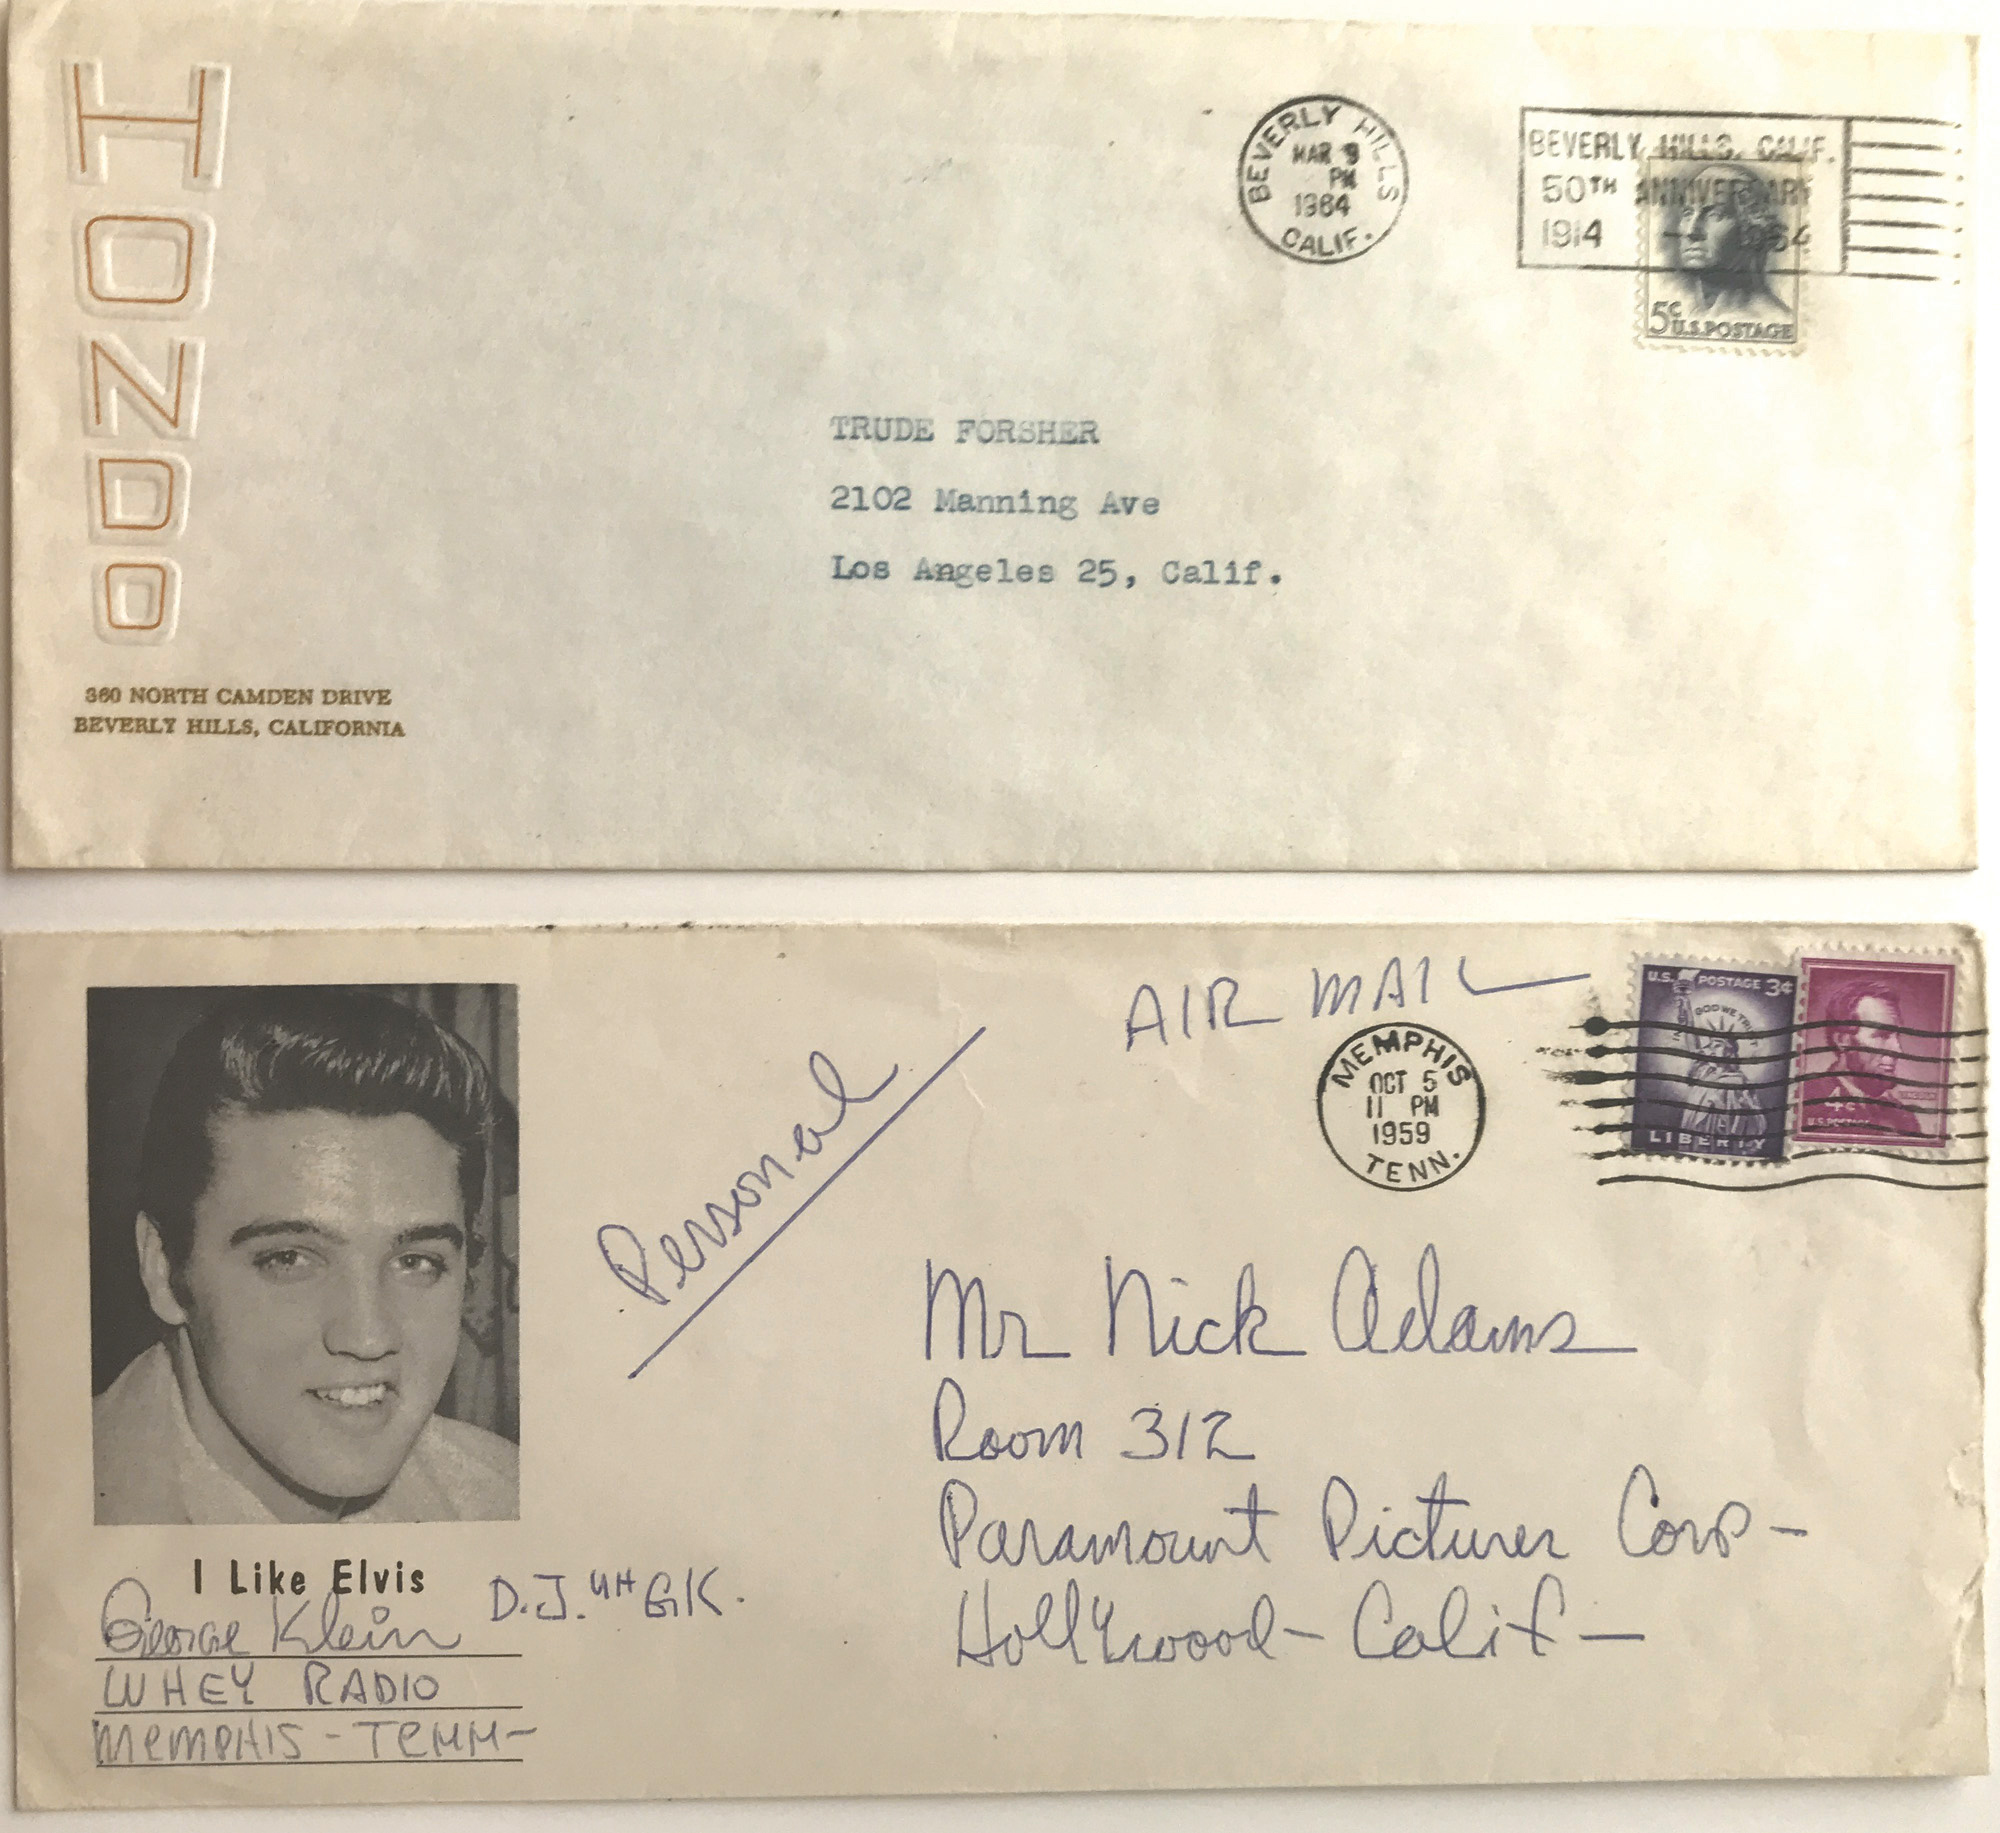 HONDO
360 NORTH CAMDEN DRIVE
BEVERLY HILLS, CALIFORNIA
BEVERLY HILLS
MAR 9
PM
1964
CALIF.
BEVERLY HILLS, CALIF.
50TH ANNIVERSARY
1914 — 1964
5¢
U.S. POSTAGE
TRUDE FORSHER
2102 Manning Ave
Los Angeles 25, Calif.
AIR MAIL
Personal
MEMPHIS
OCT 5
11 PM
1959
TENN.
U.S. POSTAGE 3¢
IN GOD WE TRUST
LIBERTY
4¢
LINCOLN
U.S. POSTAGE
Mr Nick Adams
Room 312
Paramount Pictures Corp-
Hollywood- Calif-
I Like Elvis
George Klein D.J. GK.
WHEY RADIO
MEMPHIS - TENN-